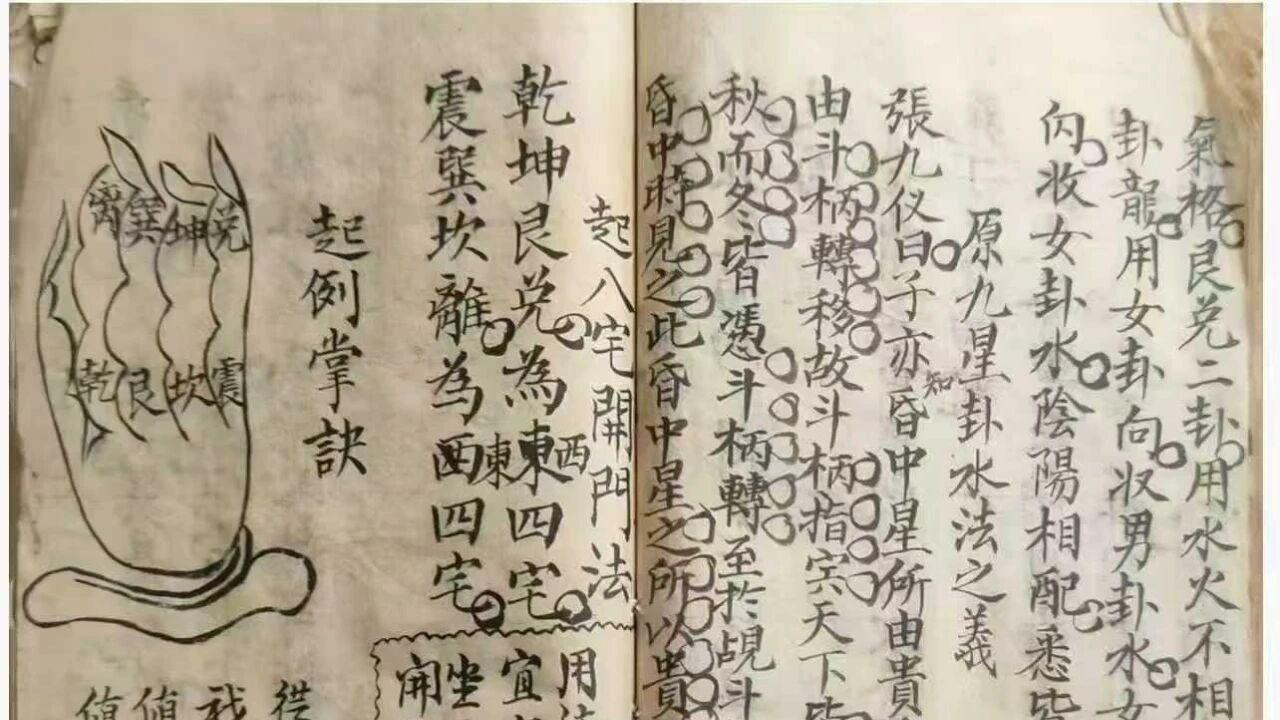 氣格艮兌二卦用水火不相
卦龍用女卦向收男卦水女
向收女卦水陰陽相配悉皆
原九星卦水法之義
張九仪曰子亦知昏中星所由貴
由斗柄轉移故斗柄指宍天下皆
秋而冬冬皆憑斗柄轉至於覘斗
昏中時見之此昏中星之所以貴
起八宅開門法
乾坤艮兌為東西四宅
震巽坎離為西東四宅
起例掌訣
離巽坤兌
乾艮坎震
用
宜
坐
開
從
我
值
值